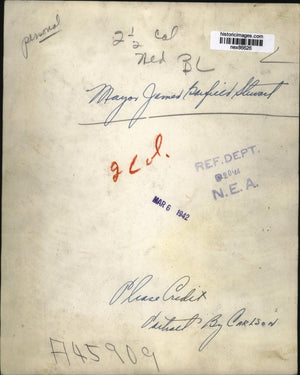 personal
historicimages.com
nex86626
2 1/2 Col
Ned BL
Mayor James Garfield Stewart
2 Col.
REF. DEPT.
N.E.A.
MAR 6 1942
Please Credit
Portrait By Carlson
A45909